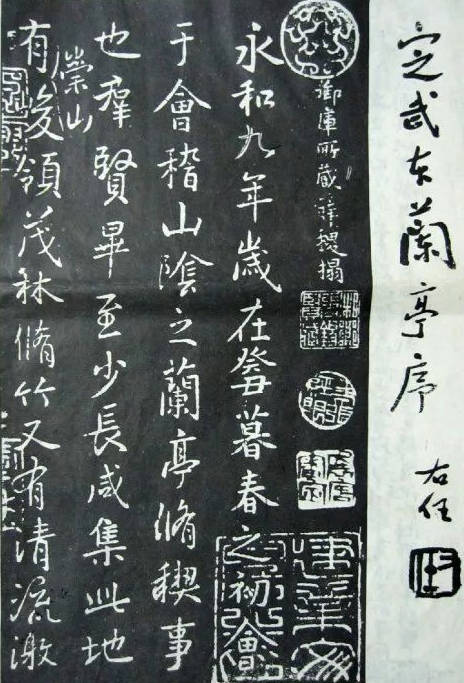 定武本蘭亭序
右任
御庫所藏薛稷搨
永和九年歲在癸丑暮春之初會
于會稽山陰之蘭亭脩稧事
也羣賢畢至少長咸集此地
有崇山峻嶺茂林脩竹又有清流激